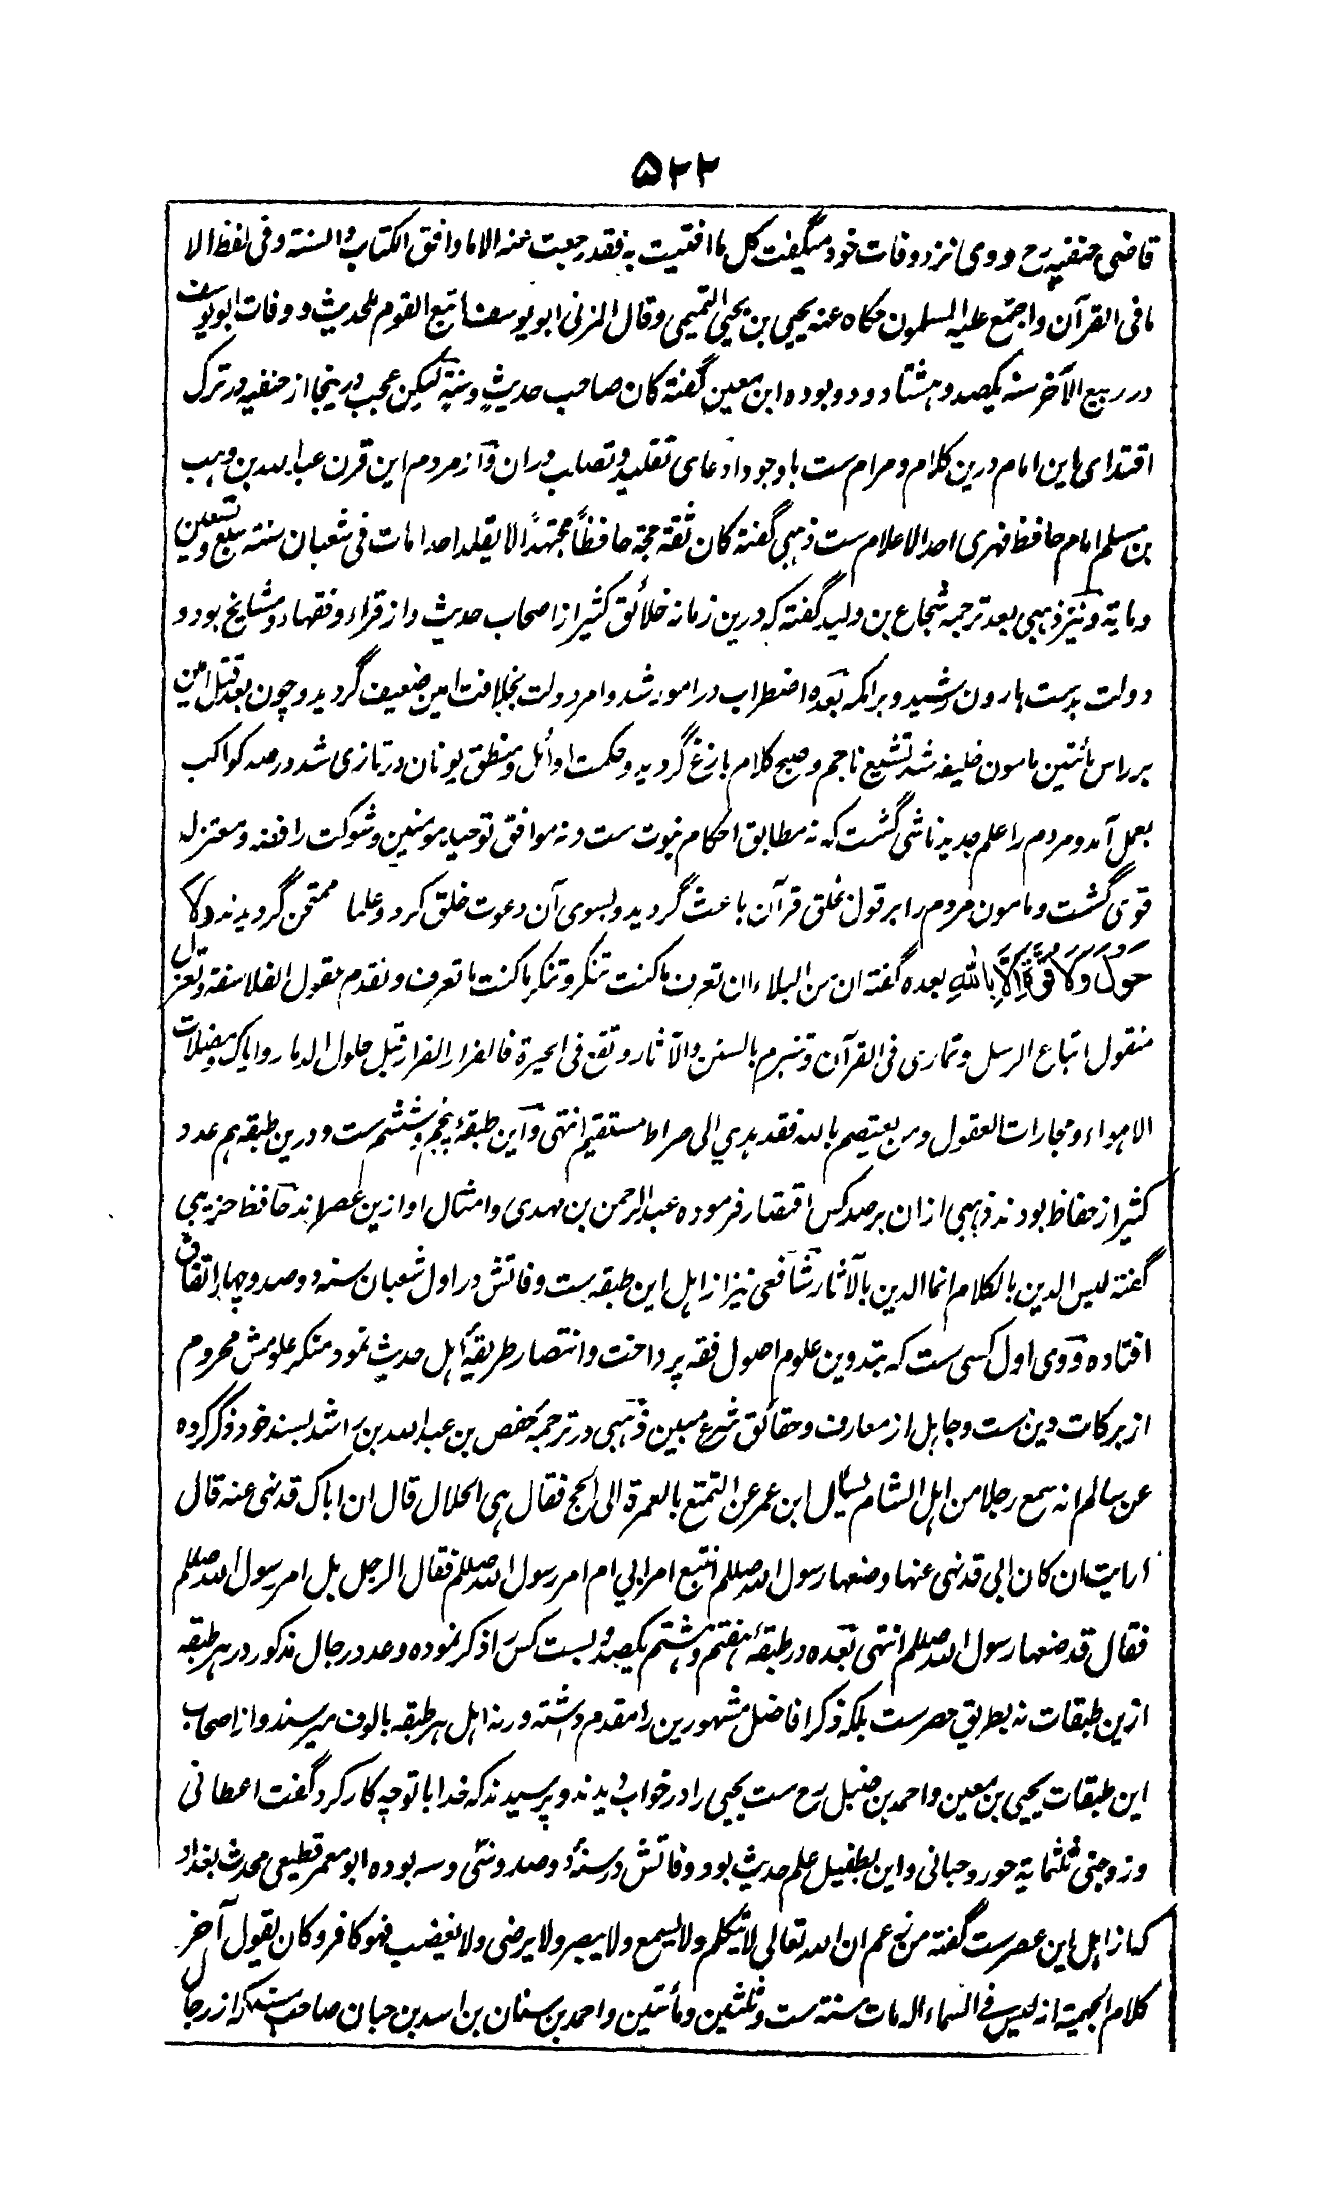 ۵۲۲
قاضی حنفیه رح ووی نزد وفات خود میگفت کل ما افتیت به فقد رجعت عنه الا ما وافق الکتاب والسنة وفی لفظ الا
ما فی القرآن واجتمع علیه المسلمون حکاه عنه یحیی بن یحیی التمیمی وقال المزنی ابو یوسف اتبع القوم للحدیث ووفات ابو یوسف
در ربیع الآخر سنه یکصد وهشتاد ودو بوده ابن معین گفته کان صاحب حدیث وسنة لیکن عجب درینجا از حنفیه در ترک
اقتدای باین امام درین کلام ومرام ست باوجود ادعای تقلید وتصلب دران وآز مردم این قرن عبد الله بن وهب
بن مسلم امام حافظ فهری احد الاعلام ست ذهبی گفته کان ثقة حجة حافظاً مجتهداً لا یقلد احدا مات فی شعبان سنة سبع وتسعین
ومایة ونیز ذهبی بعد ترجمه شجاع بن ولید گفته که درین زمانه خلائق کثیر از اصحاب حدیث واز قراء وفقهاء ومشایخ بود و
دولت بدست هارون رشید وبرامکه بعده اضطراب در امور شد وامر دولت بخلافت امین ضعیف گردید وچون بعد قتل امین
بر راس مأتین مامون خلیفه شد تشیع ناجم وصبح کلام بازغ گردید وحکمت اوائل ومنطق یونان در تازی شد ورصد کواکب
بعمل آمد ومردم را علم جدید ناشی گشت که نه مطابق احکام نبوت ست ونه موافق توحید مومنین وشوکت رافضه ومعتزله
قوی گشت ومامون مردم را بر قول خلق قرآن باعث گردید وبسوی آن دعوت خلق کرد وعلما ممتحن گردیدند ولا
حول ولا قوة الا بالله بعده گفته ان من البلاء ان تعرف ما کنت تنکر وتنکر ما کنت تعرف وتقدم عقول الفلاسفة وتعزل
منقول اتباع الرسل وتماری فی القرآن وتتبرم بالسنن والآثار وتقع فی الحیرة فالفرار الفرار قبل حلول الدمار وایاک ومضلات
الاهواء ومجارات العقول ومن یعتصم بالله فقد هدی الی صراط مستقیم انتهی وآین طبقه پنجم وششم ست ودرین طبقه هم عدد
کثیر از حفاظ بودند ذهبی ازان بر صد کس اقتصار فرموده عبد الرحمن بن مهدی وامثال او ازین عصر اند حافظ خریبی
گفته لیس الدین بالکلام انما الدین بالآثار شافعی نیز از اهل این طبقه ست وفاتش در اول شعبان سنه دوصد وچهار اتفاق
افتاده ووی اول کسی ست که بتدوین علوم اصول فقه پرداخت وانتصار طریقۀ اهل حدیث نمود منکر علومش محروم
از برکات دین ست وجاهل از معارف وحقائق شرع مبین ذهبی در ترجمه حفص بن عبد الله بن راشد بسند خود ذکر کرده
عن سالم انه سمع رجلا من اهل الشام یسأل ابن عمر عن التمتع بالعمرة الی الحج فقال هی الحلال قال ان اباک قد نهی عنه قال
ارایت ان کان ابی قد نهی عنها وصنعها رسول الله صللم انتبع امر ابی ام امر رسول الله صللم فقال الرجل بل امر رسول الله صللم
فقال قد صنعها رسول الله صللم انتهی بعده در طبقۀ هفتم وهشتم یکصد وبست کس را ذکر نموده وعدد رجال مذکور در هر طبقه
ازین طبقات نه بطریق حصر ست بلکه ذکر افاضل مشهورین را مقدم داشته ورنه اهل هر طبقه بالوف میرسند واز اصحاب
این طبقات یحیی بن معین واحمد بن حنبل رح ست یحیی را در خواب دیدند وپرسیدند که خدا با تو چه کار کرد گفت اعطانی
وزوجنی ثلثمایة حور وحبانی واین بطفیل علم حدیث بود وفاتش در سنۀ دوصد وسی وسه بوده ابو معمر قطیعی محدث بغداد
که از اهل این عصر ست گفته من زعم ان الله تعالی لا یتکلم ولا یسمع ولا یبصر ولا یرضی ولا یغضب فهو کافر وکان یقول آخر
کلام الجهمیة انه لیس فی السماء اله مات سنة ست وثلثین ومأتین واحمد بن سنان بن اسد بن حبان صاحب مسند که از رجال